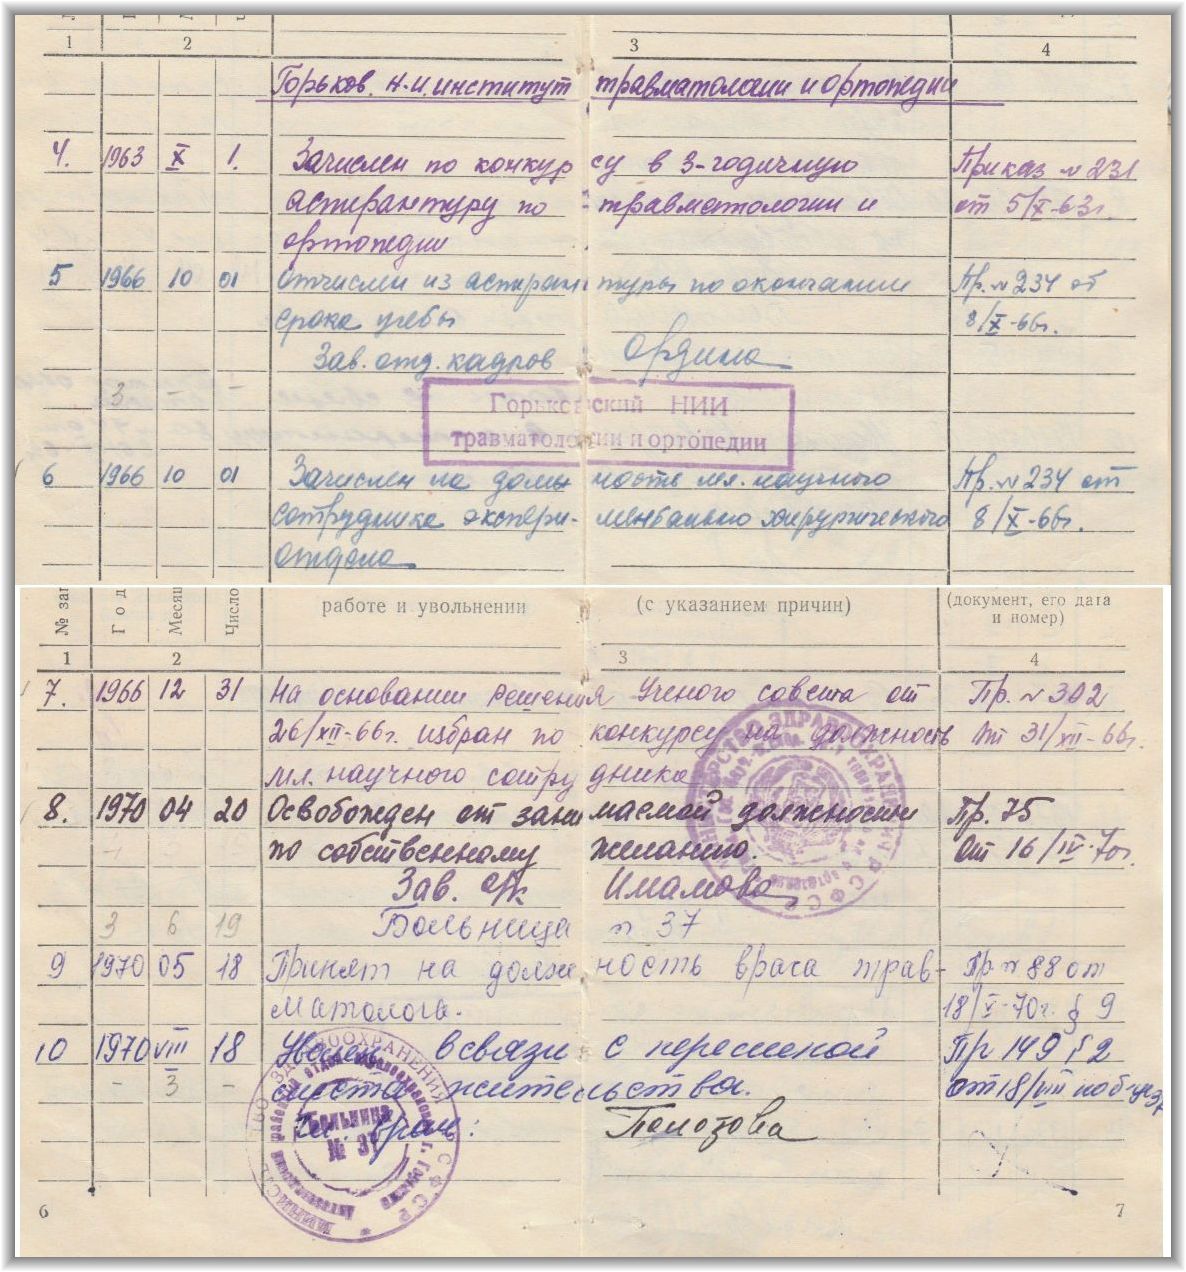 1 2 3 4
Горьков. н.и. институт травматологии и ортопедии
4. 1963 X 1. Зачислен по конкурсу в 3-годичную Приказ № 231
аспирантуру по травматологии и от 5/X-63г.
ортопедии
5 1966 10 01 Отчислен из аспирантуры по окончании Пр. № 234 от
срока учебы 8/X-66г.
Зав. отд. кадров
3 – –
Горьковский НИИ
травматологии и ортопедии
6 1966 10 01 Зачислен на должность мл. научного Пр. № 234 от
сотрудника экспери- ментального хирургического 8/X-66г.
отдела
№ зап Год Месяц Число работе и увольнении (с указанием причин) (документ, его дата
и номер)
1 2 3 4
7. 1966 12 31 На основании решения Ученого совета от Пр. № 302
26/XII-66г. избран по конкурсу на должность от 31/XII-66г.
мл. научного сотрудника
8. 1970 04 20 Освобожден от занимаемой должности Пр. 75
по собственному желанию. от 16/IV-70г.
Зав. о/к Имамова
3 6 19 Больница № 37
9 1970 05 18 Принят на должность врача трав- Пр № 88 от
матолога. 18/V-70г. § 9
10 1970 VIII 18 Уволен в связи с переменой Пр 149 § 2
– 3 – места жительства. от 18/VIII
Гл врач:
Больница
№ 37
6 7